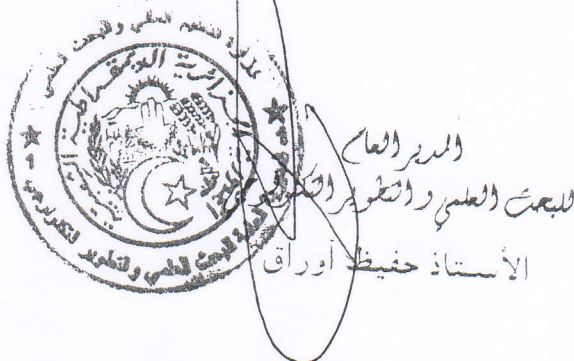 وزارة التعليم العالي والبحث العلمي
الجزائرية الديمقراطية
العامة للبحث العلمي والتطوير التكنولوجي
المدير العام
للبحث العلمي و التطوير التكنولوجي
الأستاذ حفيظ أوراق